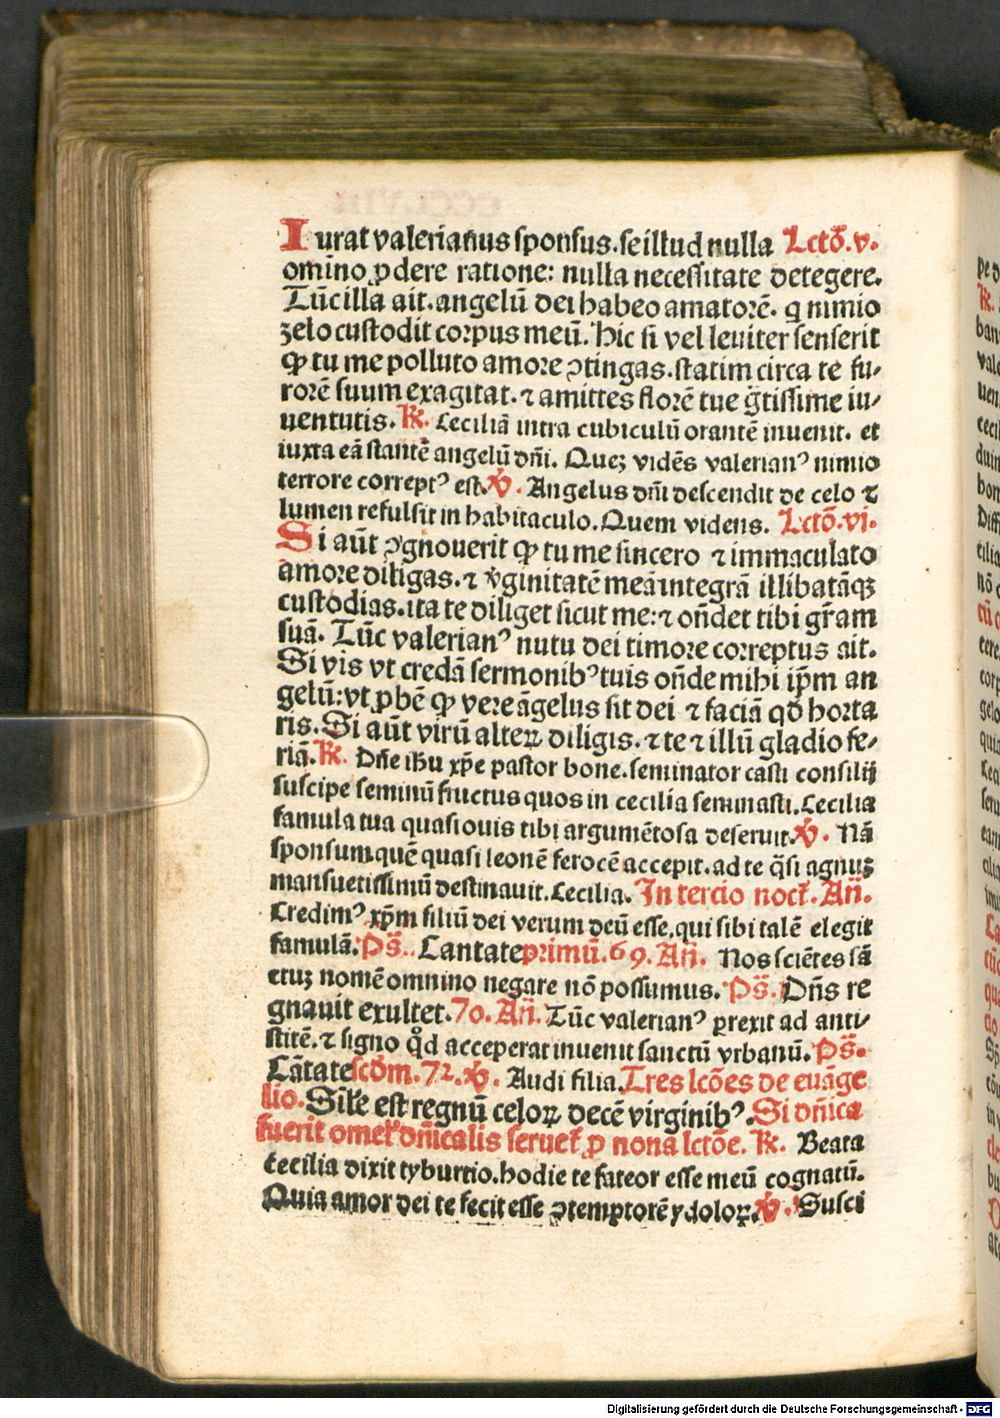 Iurat valerianus sponsus.se illud nulla Lctō.v.
omīno ꝓdere ratione: nulla necessitate detegere.
Tūc illa ait.angelū dei habeo amatorē. q nimio
zelo custodit corpus meū. hic si vel leuiter senserit
ꝙ tu me polluto amore ꝯtingas.statim circa te fu-
rorē suum exagitat.⁊ amittes florē tue g̃tissime iu-
uentutis. ℟. Ceciliā intra cubiculū orantē inuenit. et
iuxta eā stantē angelū dn̄i. Queʒ vidēs valerianꝰ nimio
terrore correptꝰ est. ℣. Angelus dn̄i descendit de celo ⁊
lumen refulsit in habitaculo.Quem videns. Lctō.vi.
Si aūt ꝯgnouerit ꝙ tu me sincero ⁊ immaculato
amore diligas.⁊ v̓ginitatē meā integrā illibatāqʒ
custodias.ita te diliget sicut me:⁊ on̄det tibi gr̄am
suā. Tūc valerianꝰ nutu dei timore correptus ait.
Si vis vt credā sermonibꝰ tuis on̄de mihi ip̄m an
gelū:vt ꝓbē ꝙ vere āgelus sit dei ⁊ faciā qd̄ horta
ris.Si aūt virū alteꝝ diligis.⁊ te ⁊ illū gladio fe-
riā. ℟. Dn̄e ih̄u xp̄e pastor bone.seminator casti consilij
suscipe seminū fructus quos in cecilia seminasti.Cecilia
famula tua quasi ouis tibi argumētosa deseruit. ℣. Nā
sponsum.quē quasi leonē ferocē accepit.ad te q̄si agnuʒ
mansuetissimū destinauit.Cecilia. In tercio noct̄. An̄.
Credimꝰ xp̄m filiū dei verum deū esse,qui sibi talē elegit
famulā. Ps̄. Cantate primū.69. An̄. Nos sciētes sā
ctuʒ nomē omnino negare nō possumus. Ps̄. Dn̄s re
gnauit exultet.70. An̄. Tūc valerianꝰ ꝑrexit ad anti-
stitē.⁊ signo qd̄ acceperat inuenit sanctū vrbanū. Ps̄.
Cātate scd̄m.72. ℣. Audi filia. Tres lcōes de euāge
lio. Sil̄e est regnū celoꝝ decē virginibꝰ. Si dn̄ica
fuerit omel̓ dn̄icalis seruet̄ ꝓ nona lctōe. ℟. Beata
Cecilia dixit tyburtio.hodie te fateor esse meū cognatū.
Quia amor dei te fecit esse ꝯtemptorē ydoloꝝ. ℣. Susci
Digitalisierung gefördert durch die Deutsche Forschungsgemeinschaft - DFG